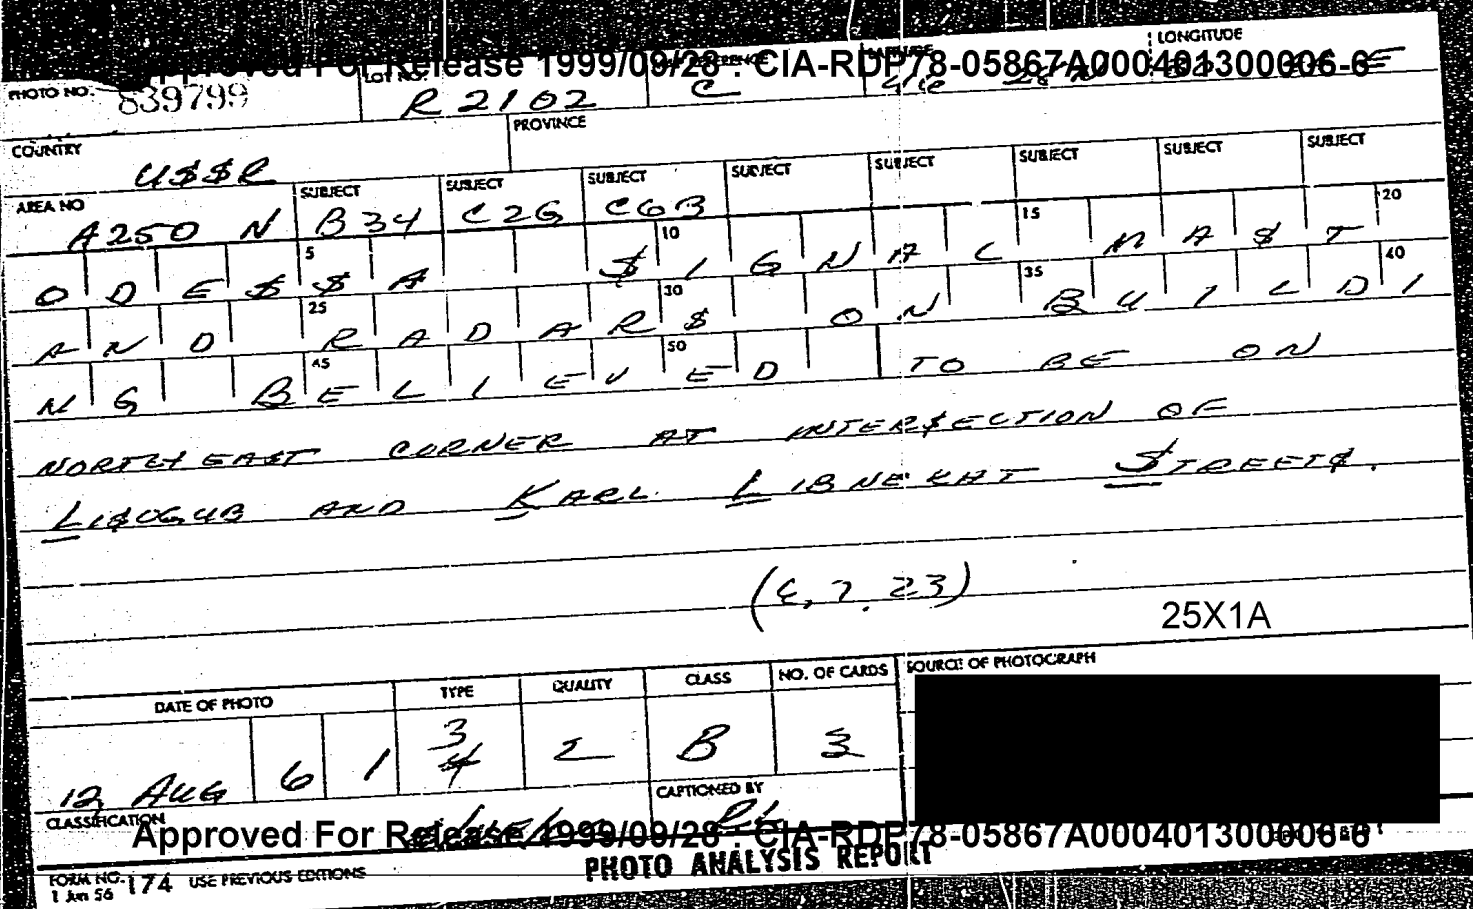 Approved For Release 1999/09/28 : CIA-RDP78-05867A000401300006-6
PHOTO NO. 839799 LOT NO. R2102 C LONGITUDE
COUNTRY U$$R PROVINCE
AREA NO A250 N SUBJECT B34 SUBJECT C2G SUBJECT C63 SUBJECT SUBJECT SUBJECT SUBJECT SUBJECT
5 10 15 20
ODE$$A $IGNAL MA$T
25 30 35 40
AND RADAR$ ON BUILDI
45 50
NG BELIEVED TO BE ON
NORTHEAST CORNER AT INTER$ECTION OF
LI$OGUB AND KARL LIBNEKHT STREET$.
25X1A
DATE OF PHOTO TYPE QUALITY CLASS NO. OF CARDS SOURCE OF PHOTOGRAPH
12 AUG 61 3 4 2 B 3
CLASSIFICATION CAPTIONED BY
Approved For Release 1999/09/28 : CIA-RDP78-05867A000401300006-6
PHOTO ANALYSIS REPORT
FORM NO. 174 USE PREVIOUS EDITIONS
1 Jun 56